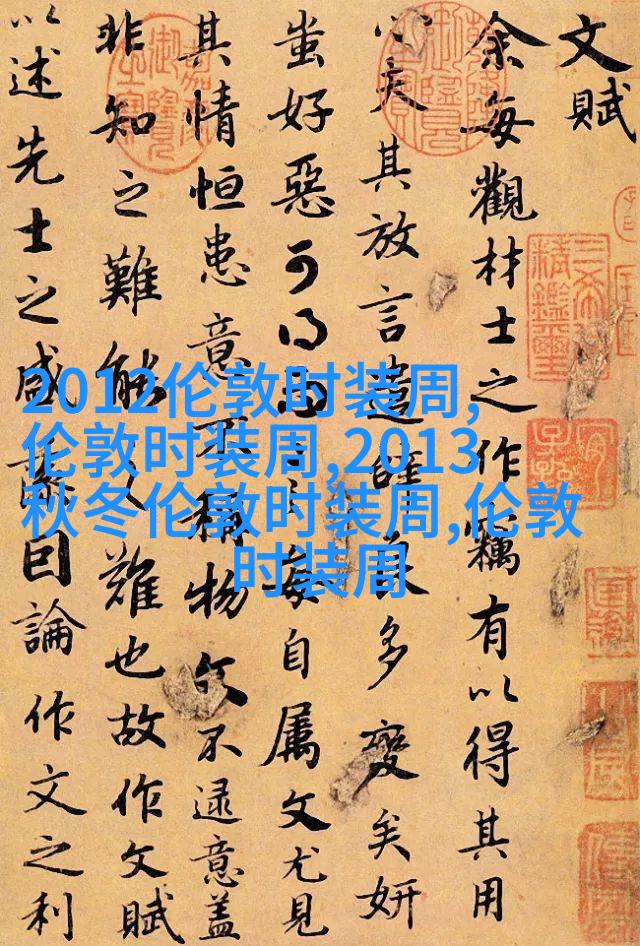 文賦
余每觀材士之作竊有以得其用
心夫其放言遣辭良多變矣妍
蚩好惡可得而言每自属文尤見
其情恒患意不稱物文不逮意盖
非知之難能之難也故作文賦
以述先士之盛藻因論作文之利
2012伦敦时装周,
伦敦时装周,2013
秋冬伦敦时装周,伦敦
时装周